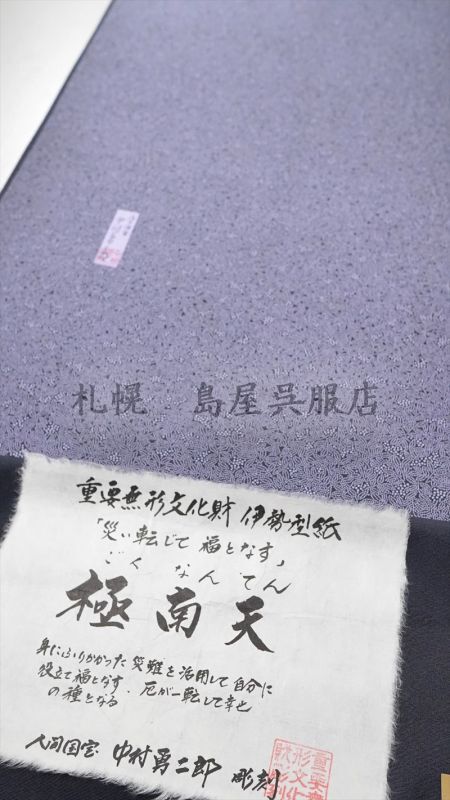 札幌　島屋呉服店
重要無形文化財 伊勢型紙
「災い転じて 福となす」
ごく なん てん
極南天
身にふりかかった災難を活用して自分に
役立て福となす・厄が一転して幸と
の種となる
人間国宝 中村勇二郎 彫刻
重要無
形文化
財彫刻